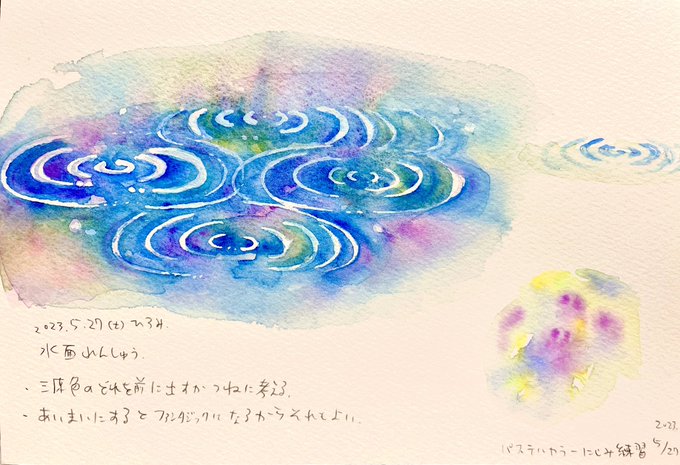 2023.5.27(土)ひろみ.
水面れんしゅう.
・三原色のどれを前に出すかつねに考える.
・あいまいにするとファンタジックになるからそれでもよい.
2023.
パステルカラーにじみ練習 5/27